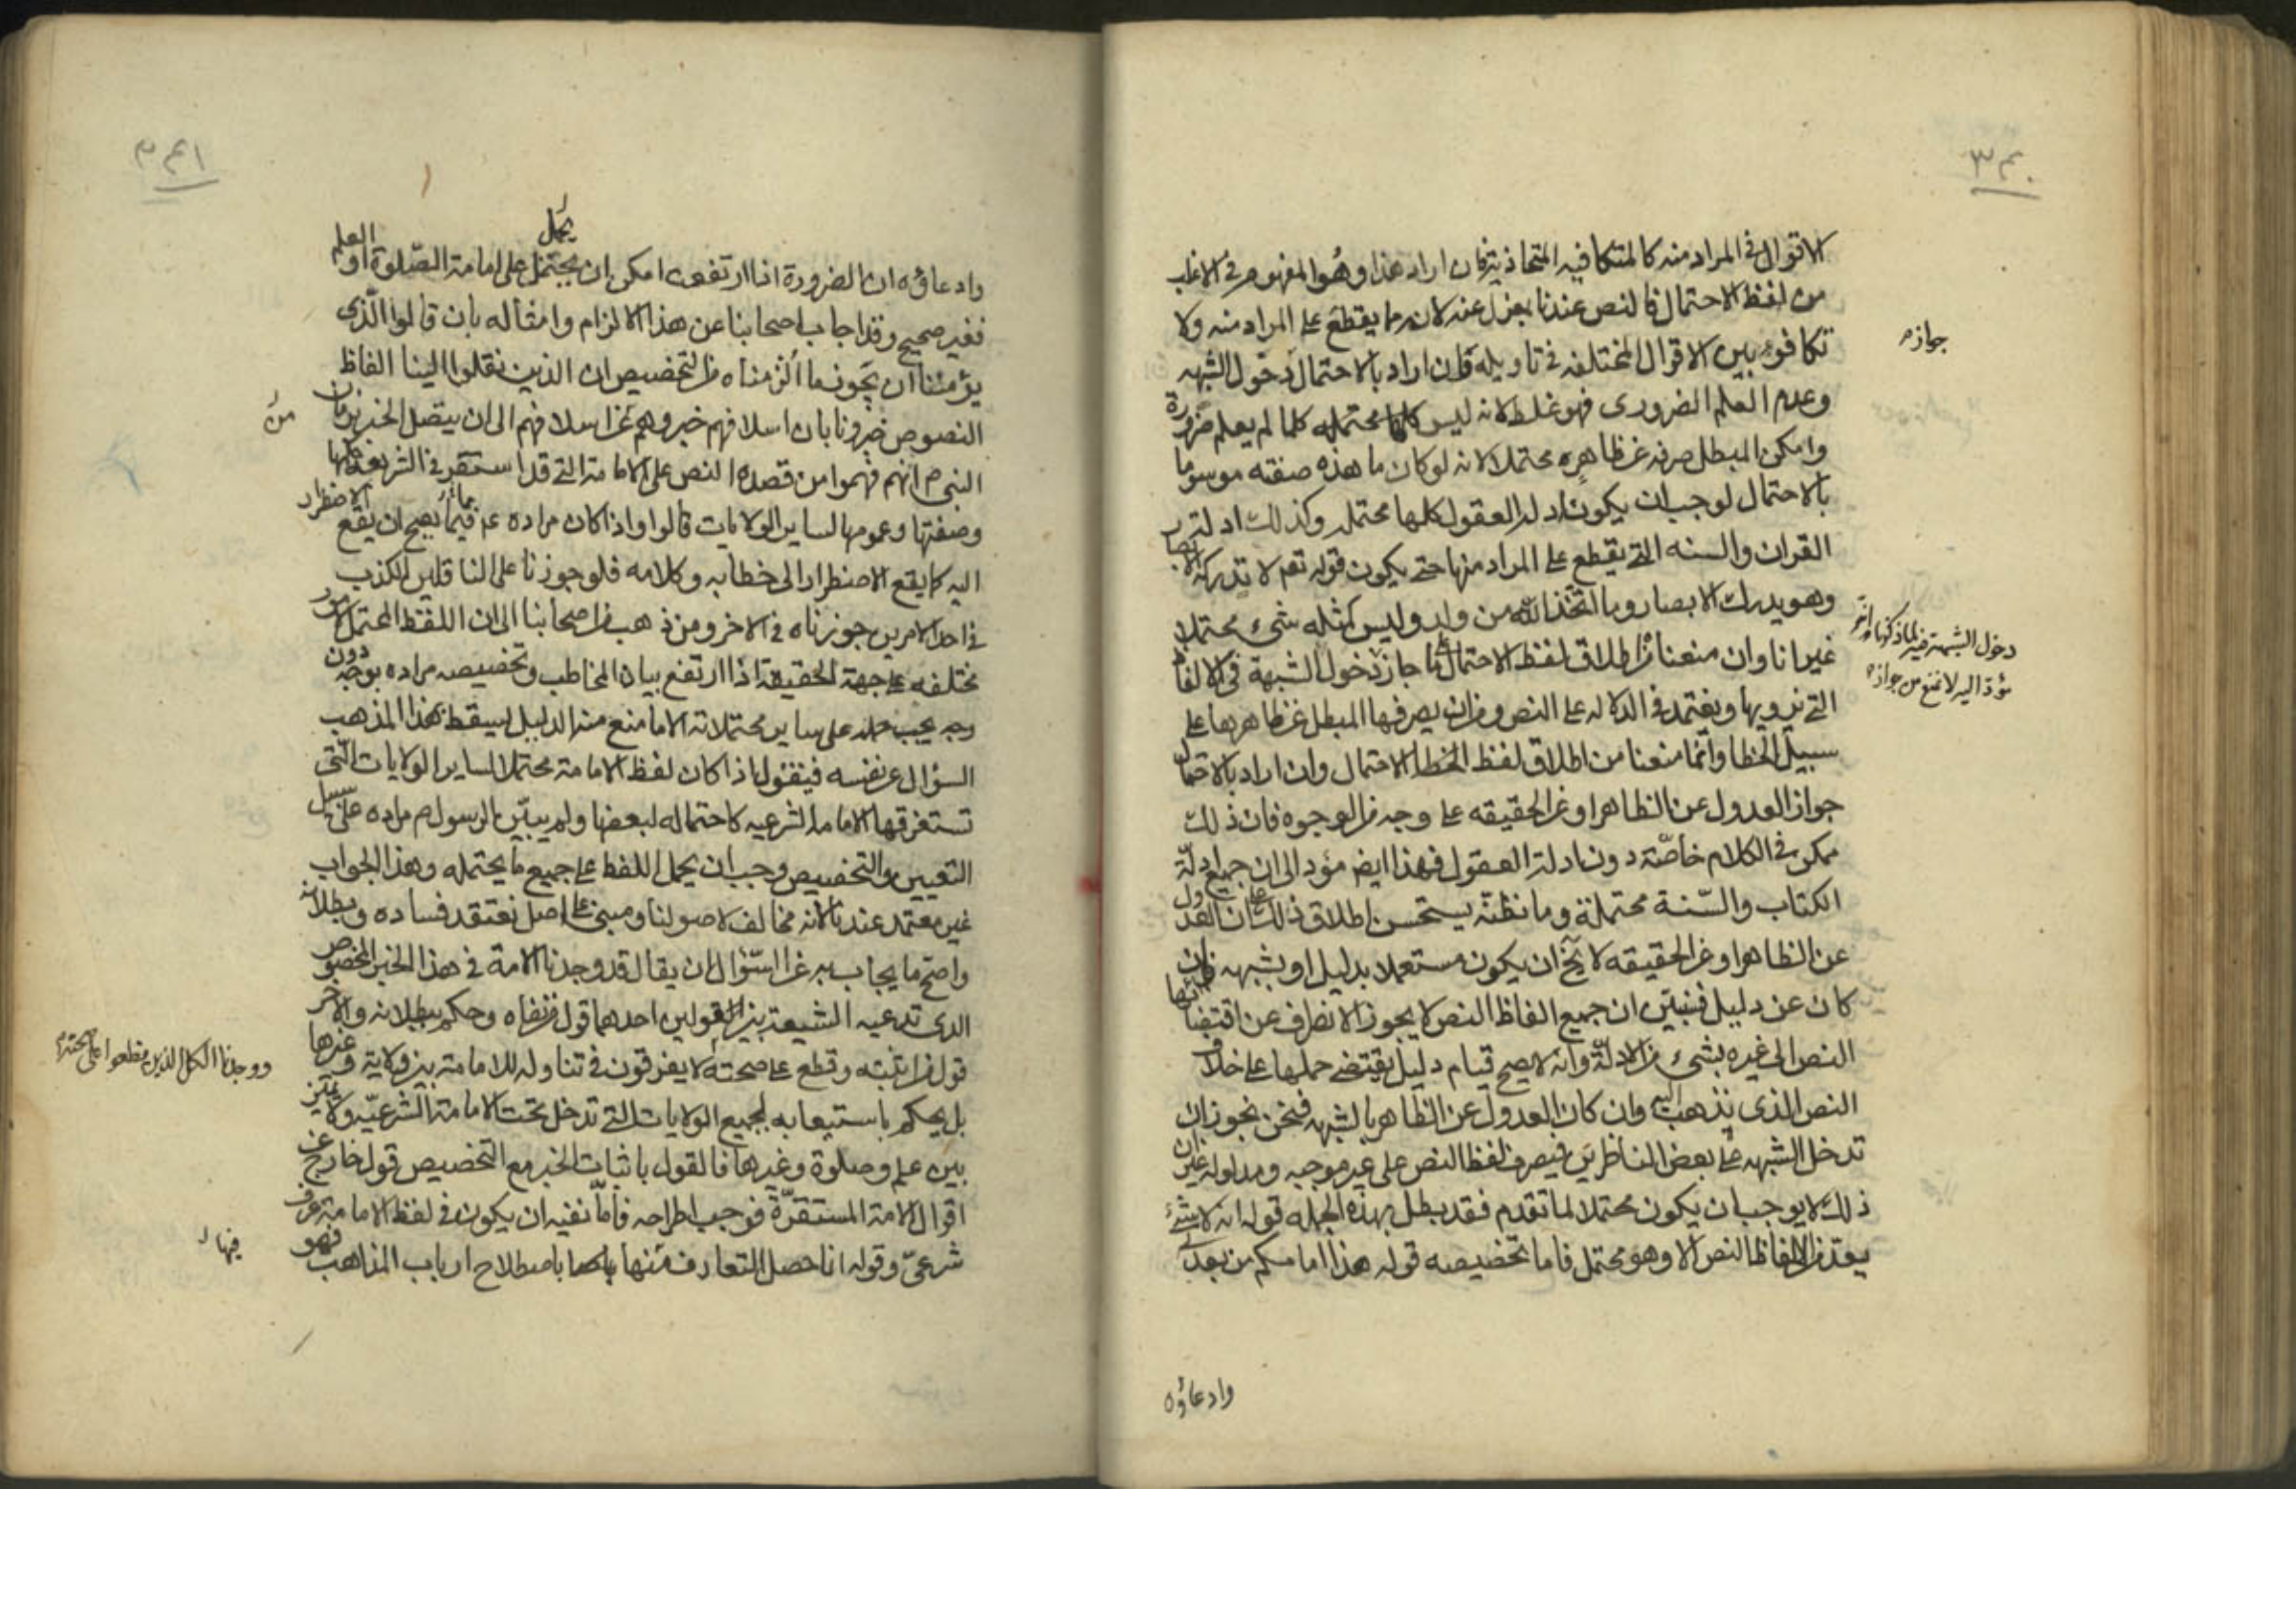 ٣٤٠
الاقوال في المراد منه كالمتكافيه المتحاذيه فان اراد هذا وهو المفهوم في الاغلب
من لفظ الاحتمال فالنص عندنا بمعزل عنه لانه مما يقطع على المراد منه ولا
تكافوء بين الاقوال المختلفه في تاويله فان اراد بالاحتمال دخول الشبهه
جوازه
وعدم العلم الضروري فهو غلط لانه ليس كلما لم يعلم ضرورة
وامكن المبطل صرفه عن ظاهره محتملا لانه لو كان ما هذه صفته موسوما
بالاحتمال لوجب ان يكون ادله العقول كلها محتمله وكذلك ادلة
القران والسنه التي يقطع على المراد منها حتى يكون قوله تعم لا تدركه الابصار
وهو يدرك الابصار وما اتخذ الله من ولد وليس كمثله شيء محتملا
غير انا وان منعنا من اطلاق لفظ الاحتمال جاز دخول الشبهة في الالفاظ
دخول الشبهة فيه لما ذكرناه
لا تمنع من جوازه
التي نرويها ونعتمد في الدلاله على النص وفي ان يصرفها المبطل عن ظاهرها على
سبيل الخطا وانما منعنا من اطلاق لفظ الاحتمال وان اراد بالاحتمال
جواز العدول عن الظاهر او عن الحقيقه على وجه من الوجوه فان ذلك
ممكن في الكلام خاصّة دون ادلة العقول فهذا ايض مؤد الى ان جميع ادلّة
الكتاب والسّنة محتملة وما نظنّه يستحسن اطلاق ذلك على ان العدول
عن الظاهر او عن الحقيقه لا يخ ان يكون مستعملا بدليل او بشبهه فان
كان عن دليل فنبيّن ان جميع الفاظ النص لا يجوز الانصراف عن اقتضائها
النص الى غيره بشيء من الادلّة وانه لا يصح قيام دليل يقتضي حملها على خلاف
النص الذي نذهب اليه وان كان العدول عن الظاهر بالشبهه فنحن نجوز ان
تدخل الشبهه على بعض الناظرين فيصرف لفظ النص على غير موجبه ومدلوله غير ان
ذلك لا يوجب ان يكون محتملا لما تقدم فقد بطل بهذه الجمله قوله انه لا شيء
يعد من الفاظ النص الا وهو محتمل فاما تخصيصه قوله هذا امامكم من بعدي
وادعاؤه
٣٤١
يحمل
وادعاؤه ان الضرورة اذا ارتفعت امكن ان يحتمل على امامة الصّلوة او العلم
فغير صحيح وقد اجاب اصحابنا عن هذا الالزام وامثاله بان قالوا الّذي
يؤمننا ان يكون ما الزمناه من التخصيص ان الذين نقلوا الينا الفاظ
النصوص خبرونا بان اسلافهم خبروهم عن اسلافهم الى ان يتصل الخبر بزمان
من
النبي م انهم فهموا من قصده النص على الامامة التي قد استقر في الشريعة حكمها
وصفتها وعمومها لساير الولايات قالوا واذا كان مراده ع مما يصح ان يقع الاضطرار
اليه كما يقع الاضطرار الى خطابه وكلامه فلو جوزنا على الناقلين الكذب
في احد الامرين جوزناه في الاخر ومن ذهب من اصحابنا الى ان اللفظ المحتمل لامور
مختلفه على جهة الحقيقة اذا ارتفع بيان المخاطب وتخصيصه مراده بوجه دون
وجه يجب حمله على ساير محتملاته الا ما منع منه الدليل يسقط بهذا المذهب
السؤال عن نفسه فيقول اذا كان لفظ الامامة محتملا لساير الولايات الّتي
تستغرقها الامامة الشرعيه كاحتماله لبعضها ولم يبيّن الرسول م مراده على سبيل
التعيين والتخصيص وجب ان يحمل اللفظ على جميع ما يحتمله وهذا الجواب
غير معتمد عندنا لانه مخالف لاصولنا ومبني على اصل نعتقد فساده وبطلانه
واصح ما يجاب به عن السّؤال ان يقال قد وجدنا الامة في هذا الخبر المخصوص
الذي تدعيه الشيعة بين القولين احدهما قول من نفاه وحكم ببطلانه والاخر
قول من اثبته وقطع على صحته لا يفرقون في تناوله للامامة بين ولاية وغيرها
ووجدنا الكل الذين قطعوا على صحته
بل يحكم باستيعابه لجميع الولايات التي تدخل تحت الامامة الشرعيّه ولا تميّز
بين علم وصلوة وغيرها فالقول باثبات الخبر مع التخصيص قول خارج عن
اقوال الامة المستقرّة فوجب اطراحه فامّا نفيه ان يكون في لفظ الامامة عرف
شرعيّ وقوله انا حصل التعارف منها باصطلاح ارباب المذاهب فهو
فيها